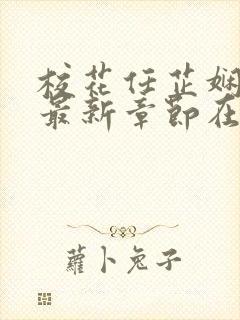 校花任芷娴
最新章节在
蘿卜兔子